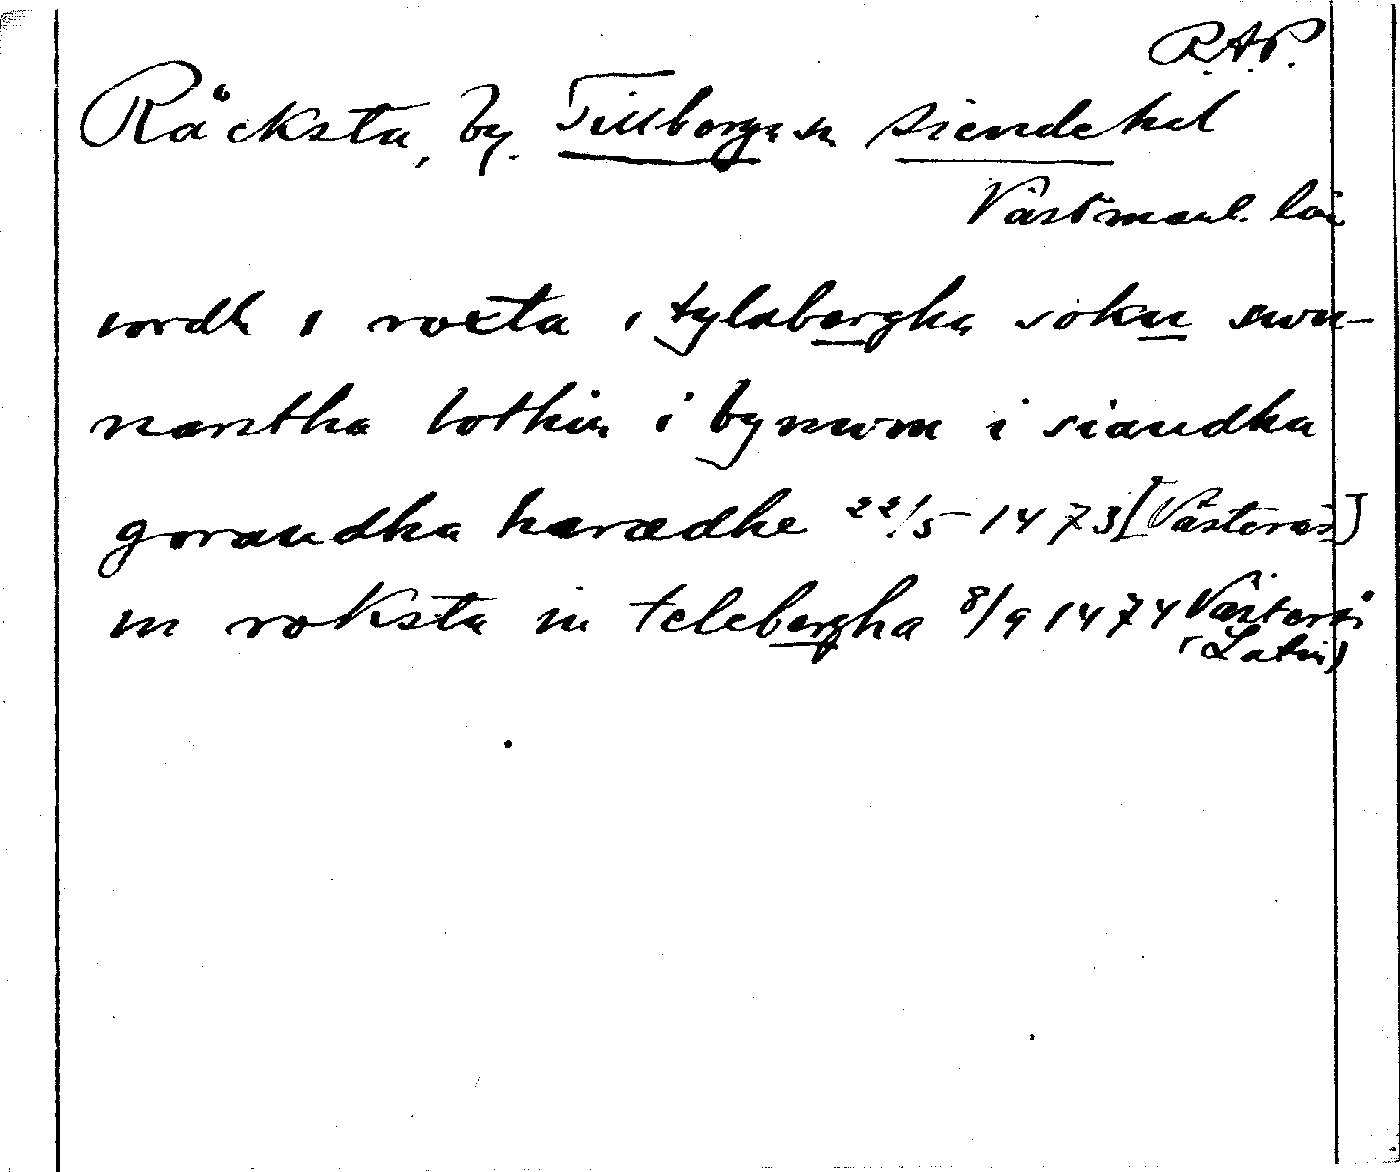 R.A.P.
Räcksta, by. Tillberga sn Siende hd
Västmanl. län
iordh i roxta i tylabergha sokn swn-
nantha lothin i bynwm i siandha
gorandha haradhe 22/5 1473 [Västerås]
in roksta in telebergha 8/9 1474 Västerås
(Latin)